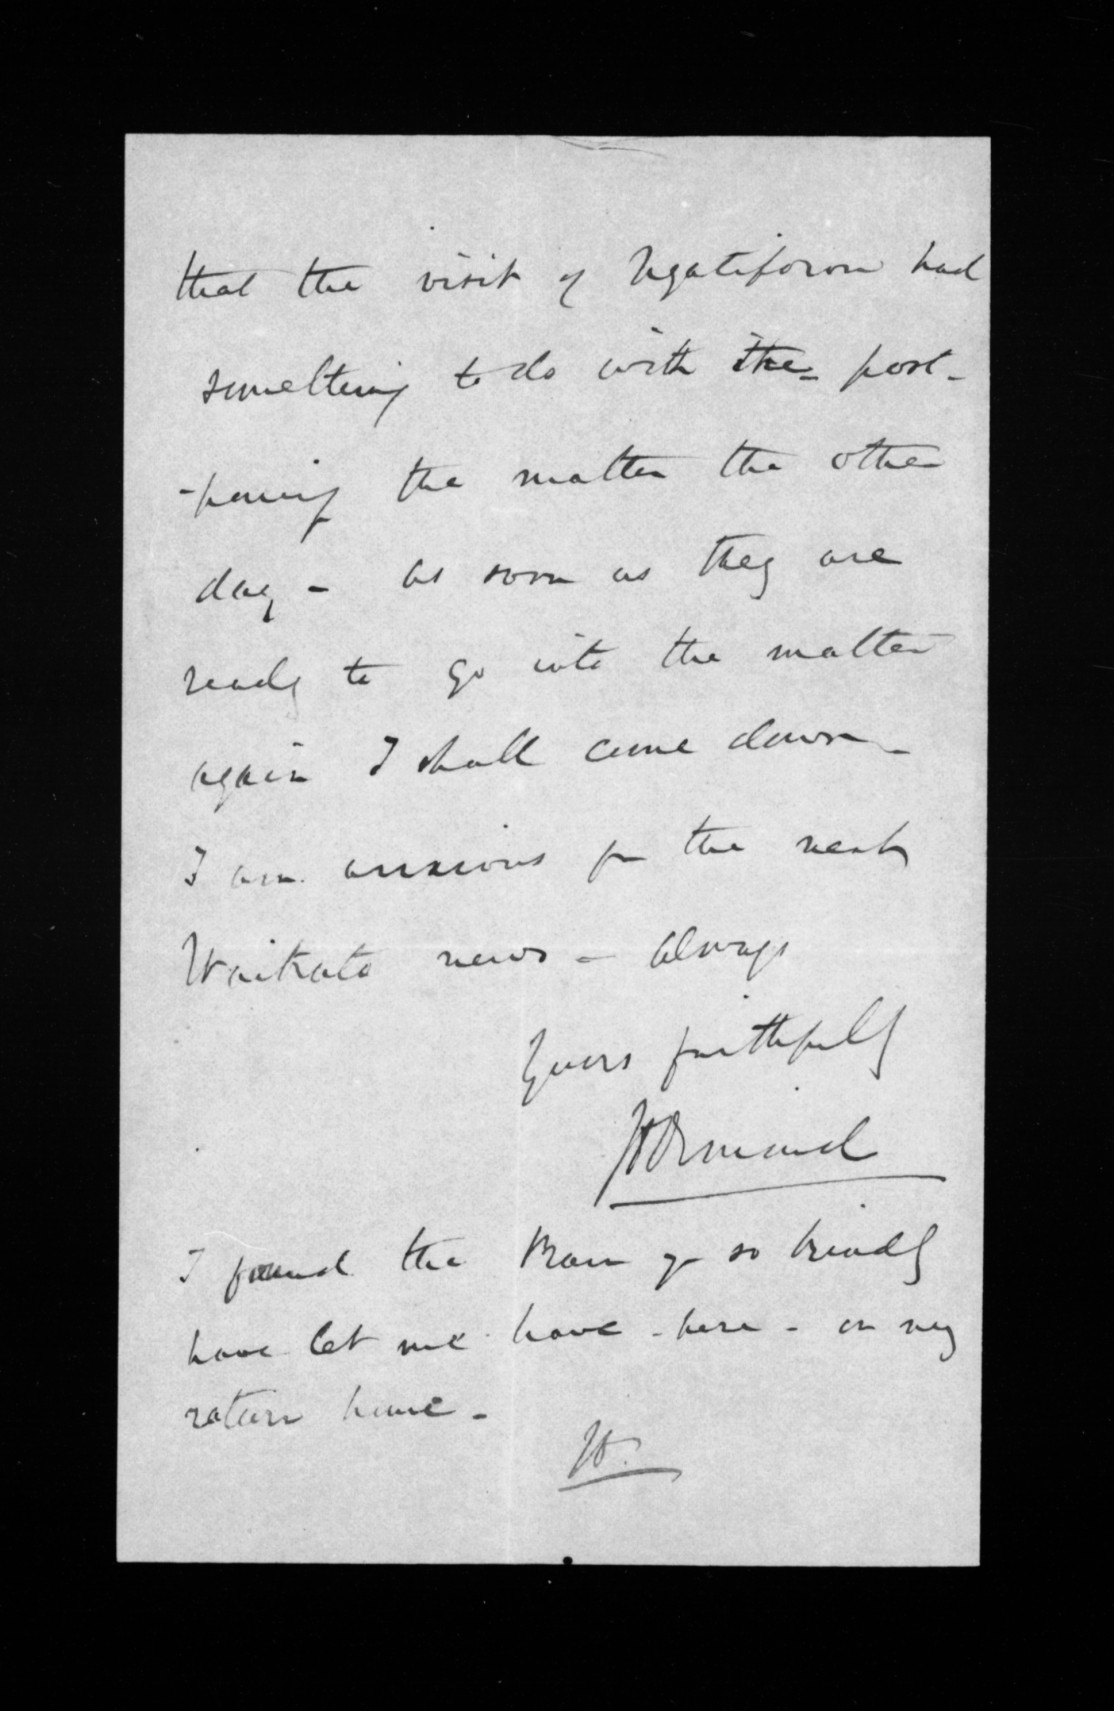 that the visit of Ngatiporou had
something to do with the post-
-poning the matter the other
day - as soon as they are
ready to go into the matter
again I shall come down -
I am anxious for the next
Waikato news - always
Yours faithfully
JDOrmond
I found the Mare you so kindly
have let me have - here - on my
return home -
JD.